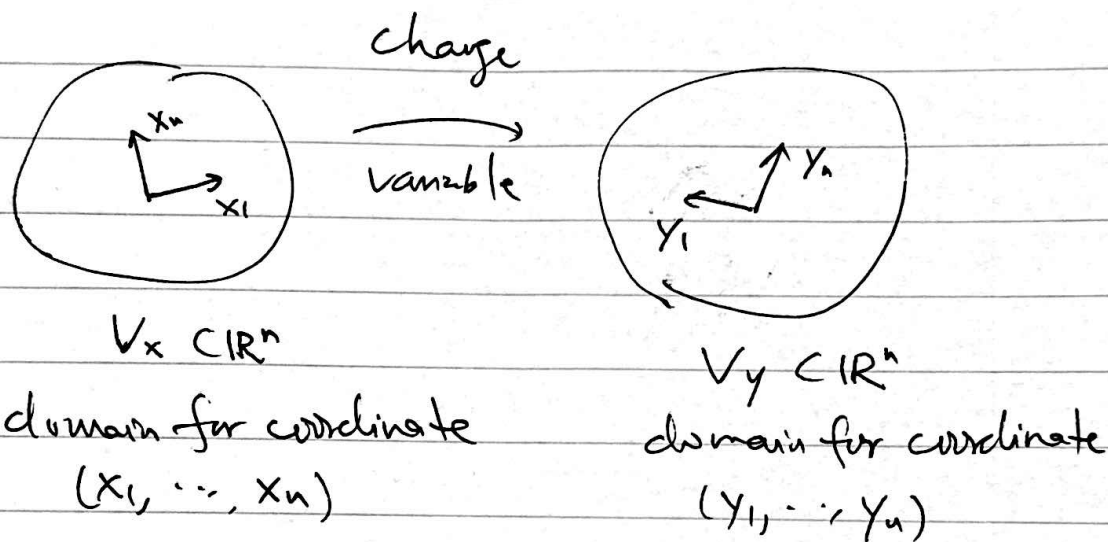 change
variable
xn
x1
yn
y1
Vx ⊂ ℝⁿ
domain for coordinate
(x1, ..., xn)
Vy ⊂ ℝⁿ
domain for coordinate
(y1, ..., yn)